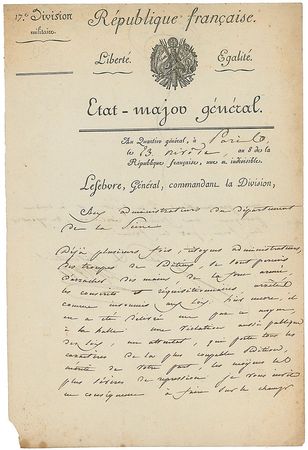 17.e Division
militaire.
République française.
Liberté. Egalité.
Etat-major général.
Au Quartier général, à Paris
le 13 nivôse an 8 de la
République française, une et indivisible.
Lefebvre, Général, commandant la Division,
aux administrateurs du département
de la Seine
Déjà plusieurs fois, citoyens administrateurs,
des troupes de séditieux, se sont permis
d'arracher des mains de la force armée,
les conscrits et réquisitionnaires arrêtés
comme insoumis aux lois hier encore, il
en a été délivré un par ce moyen,
à la halle une violation aussi publique
des lois, un attentat, qui porte tous les
caractères de la plus coupable sédition,
mérite de votre part, les moyens les
plus sévères de répression je vous invite
en conséquence à faire sur le champ